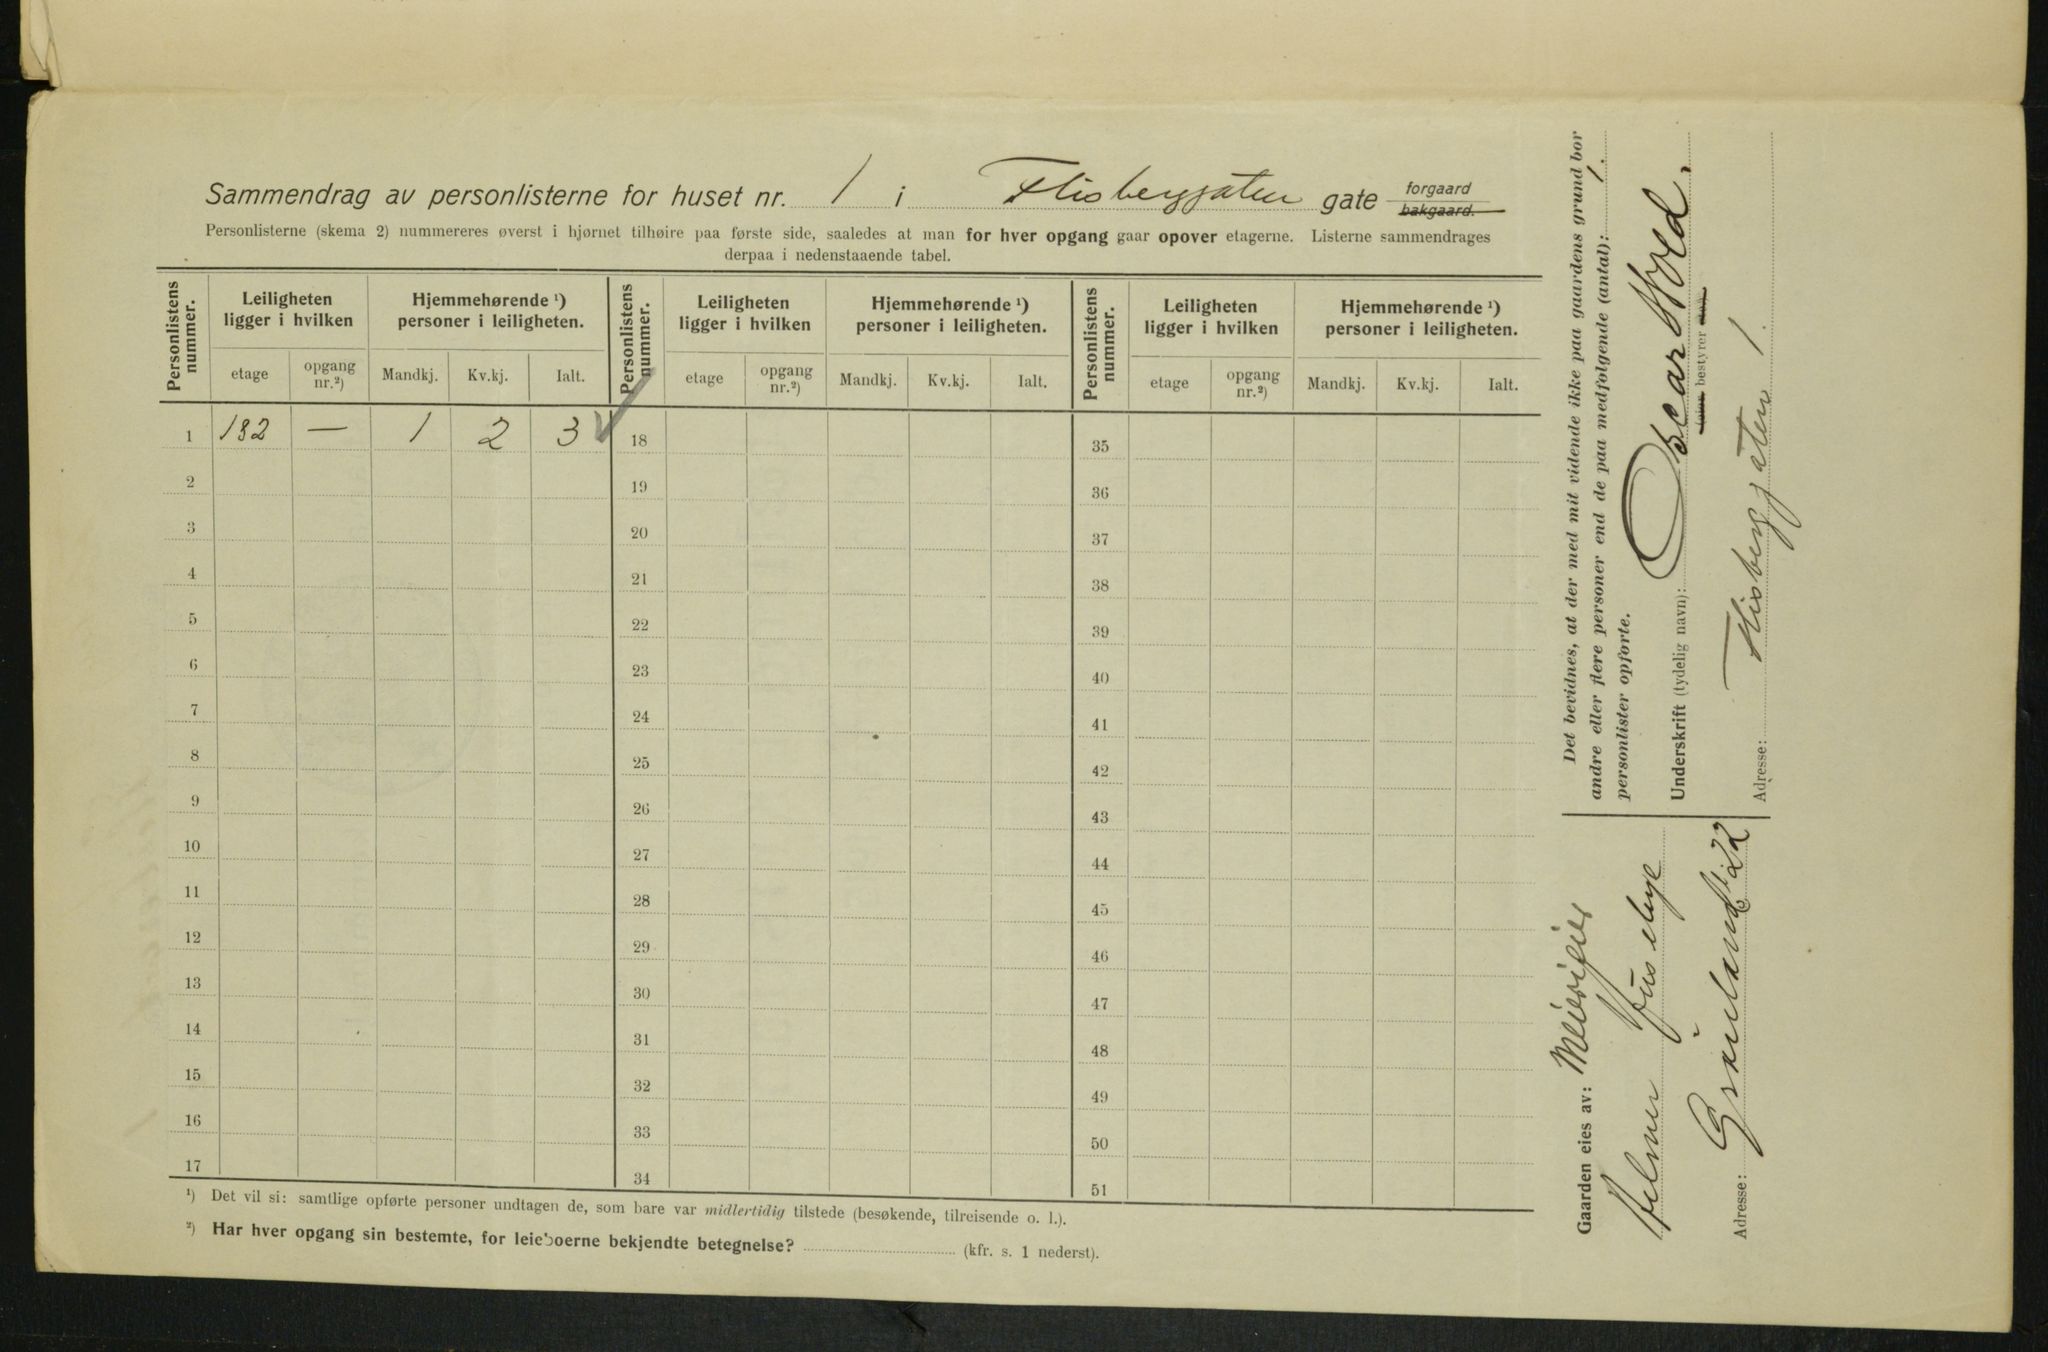 Sammendrag av personlisterne for huset nr. 1 i Flisberggaten gate forgaard
bakgaard.
Personlisterne (skema 2) nummereres øverst i hjørnet tilhøire paa første side, saaledes at man for hver opgang gaar opover etagerne. Listerne sammendrages
derpaa i nedenstaaende tabel.
Personlistens nummer. Leiligheten ligger i hvilken Hjemmehørende ¹) personer i leiligheten. Personlistens nummer. Leiligheten ligger i hvilken Hjemmehørende ¹) personer i leiligheten. Personlistens nummer. Leiligheten ligger i hvilken Hjemmehørende ¹) personer i leiligheten.
etage opgang nr.²) Mandkj. Kv.kj. Ialt. etage opgang nr.²) Mandkj. Kv.kj. Ialt. etage opgang nr.²) Mandkj. Kv.kj. Ialt.
1 1&2 — 1 2 3 18 35
2 19 36
3 20 37
4 21 38
5 22 39
6 23 40
7 24 41
8 25 42
9 26 43
10 27 44
11 28 45
12 29 46
13 30 47
14 31 48
15 32 49
16 33 50
17 34 51
¹) Det vil si: samtlige opførte personer undtagen de, som bare var midlertidig tilstede (besøkende, tilreisende o. l.).
²) Har hver opgang sin bestemte, for leieboerne bekjendte betegnelse? (kfr. s. 1 nederst).
Det bevidnes, at der med mit vidende ikke paa gaardens grund bor
andre eller flere personer end de paa medfølgende (antal): 1.
personlister opførte.
Underskrift (tydelig navn): Oscar Wold.
bestyrer
Adresse: Flisberggaten 1.
Gaarden eies av: Meierieier
Hilmer Huseby
Adresse: Grønlandsl. 22